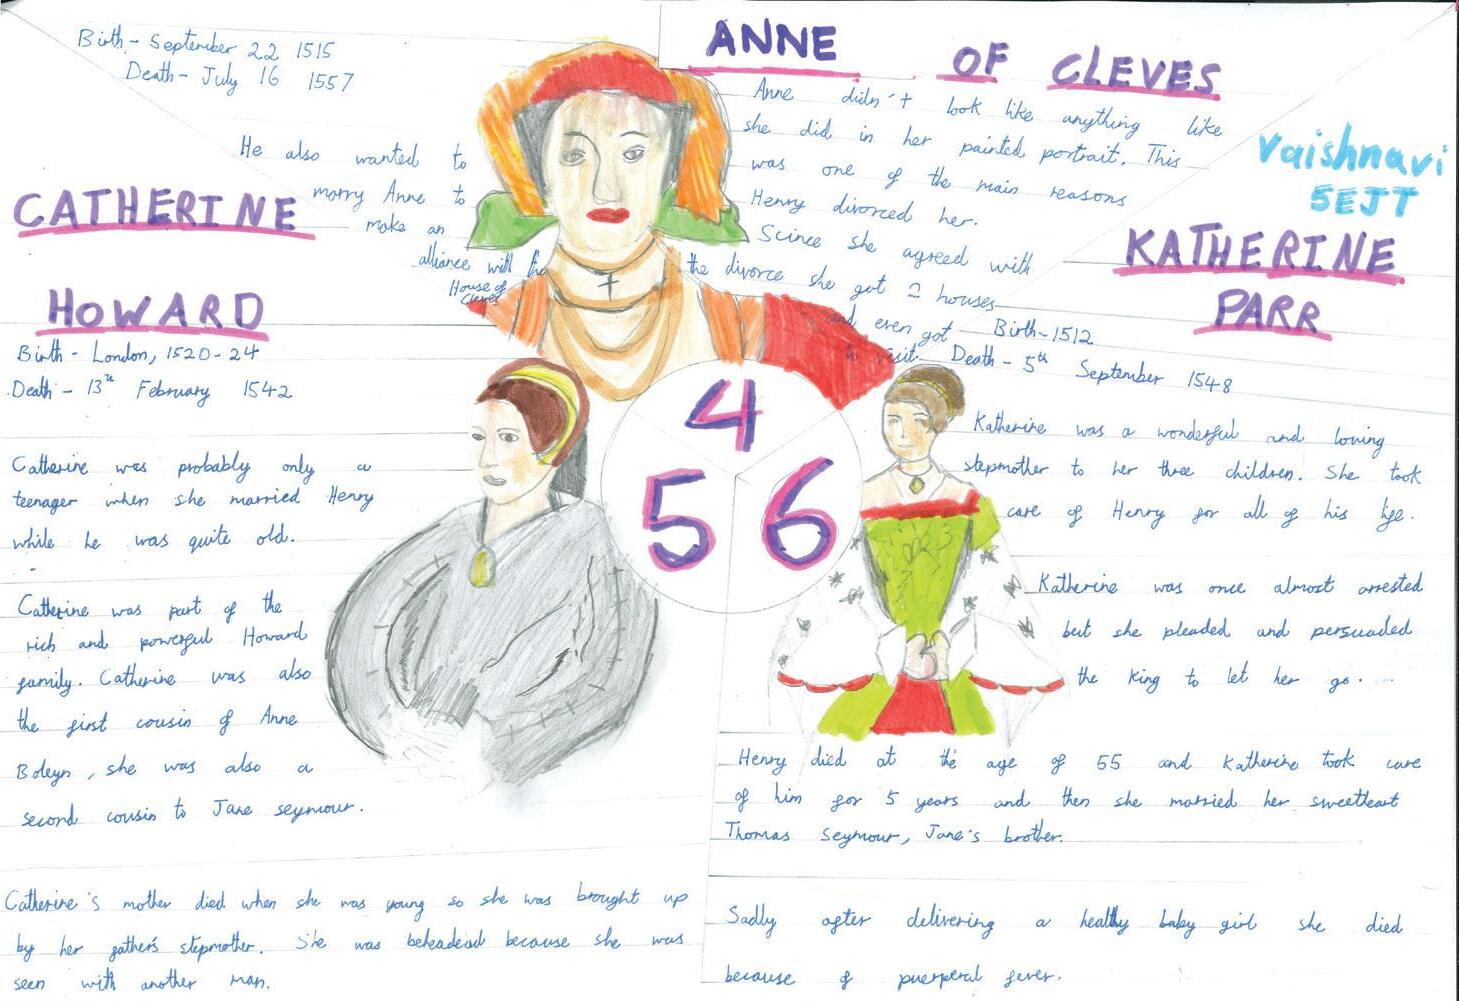 Birth - September 22 1515
Death - July 16 1557
He also wanted to
marry Anne to
make an
alliance with the
House of
Cleves
ANNE OF CLEVES
Anne didn't look like anything like
she did in her painted portrait. This
was one of the main reasons
Henry divorced her.
Scince she agreed with
the divorce she got 2 houses
and even got
to visit.
vaishnavi
5EJT
CATHERINE
HOWARD
Birth - London, 1520-24
Death - 13th February 1542
Catherine was probably only a
teenager when she married Henry
while he was quite old.
Catherine was part of the
rich and powerful Howard
family. Catherine was also
the first cousin of Anne
Boleyn, she was also a
second cousin to Jane seymour.
Catherine's mother died when she was young so she was brought up
by her father's stepmother. She was beheadead because she was
seen with another man.
4
5 6
KATHERINE
PARR
Birth - 1512
Death - 5th September 1548
Katherine was a wonderful and loving
stepmother to her three children. She took
care of Henry for all of his life.
Katherine was once almost arrested
but she pleaded and persuaded
the King to let her go.
Henry died at the age of 55 and Katherine took care
of him for 5 years and then she married her sweetheart
Thomas Seymour, Jane's brother.
Sadly after delivering a healthy baby girl she died
because of puerperal fever.